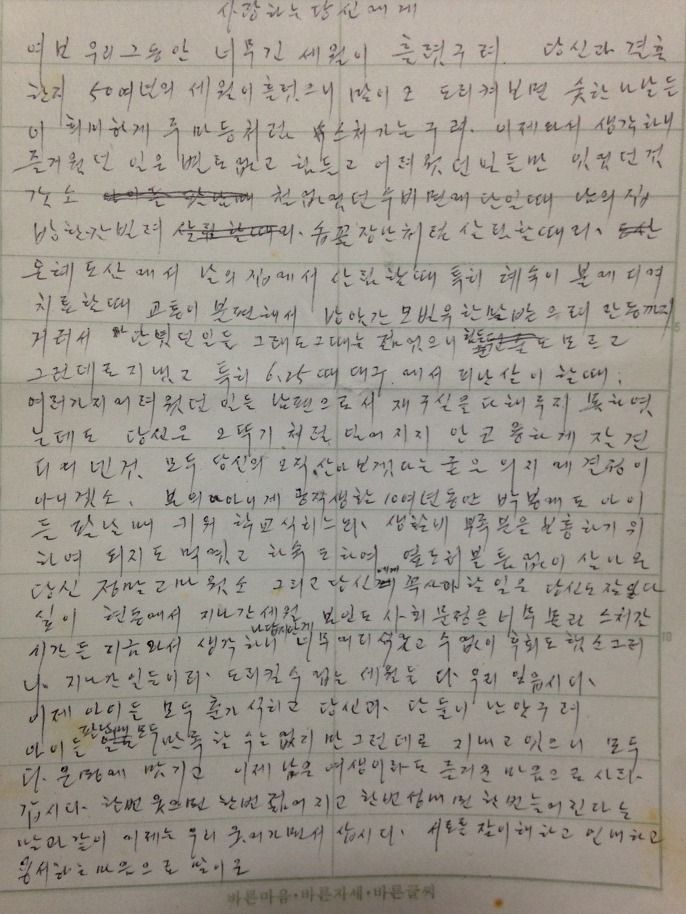 사랑하는 당신에게
여보 우리 그동안 너무 긴 세월이 흘렸구려. 당신과 결혼
한지 50여년의 세월이 흘렀으니 말이오 도리켜보면 숫한 나날들
이 희미하게 주마등처럼 스처가는구려. 이제와서 생각하니
즐거웠던 일은 별로없고 힘들고 어려웠던 일들만 있었던것
갓소 철없었던 수비면에 단일때 남의 집
방한간 빌려 솝꼽장난처럼 살림할때리.
온혜 도산에서 남의 집에서 살림할때 특히 혜숙이 몸에 디겨
치료할때 교통이 불편해서 한말
거러서 단녔던일들 그래도 그때는 젊었으니 힘든줄도 모르고
그런데로 지냈고 특히 6.25때 대구에서 피난살이 할때,
여러가지 어려웠던 일들 남편으로서 재구실을 다해주지 못하엿
는데도 당신은 오뚜기처럼 넘어지지 안고 용하게 잘 견
디여 넨것 모두 당신의 오직 살아보겟다는 굳은 의지에 결정이
아니겟소. 본의 아니게 공직생활 10여년동안 박봉에도 아이
들 팔남매 키워 학교식히느라, 생활비 부족분을 보충하기 위
하여 되지도 먹엿고 하숙도 하여 열도처 볼틈없이 살아온
당신 정말 고마웟소 그리고 당신에게 꼭 사과할 일은 당신도 잘 알다
싶이 현동에서 지나간 세월 본인도 사회 물정을 너무 몰라 스처간
시간들 지금와서 생각하니 남답지안게 너무 어리석었고 수없이 후회도 했소 그러
나. 지나간 일들이라. 도리킬수 업는 세월들 다. 우리 잊읍시다.
이제 아이들 모두 출가 식히고 당신과. 단둘이 남았구려
아이들 팔남매 모두 만족할 수는 없지만 그런데로 지내고 있으니 모두
다. 운명에 맛기고 이제 남은 여생이라도 즐거운 마음으로 사라.
갑시다. 한번 웃으면 한번 젊어지고 한번 성내면 한번 늘어진다는
말과같이 이제는 우리 웃어가면서 삽시다. 서로를 잘 이해하고 인내하고
용서하는 마음으로 말이오
바른마음·바른자세·바른글씨
5
10